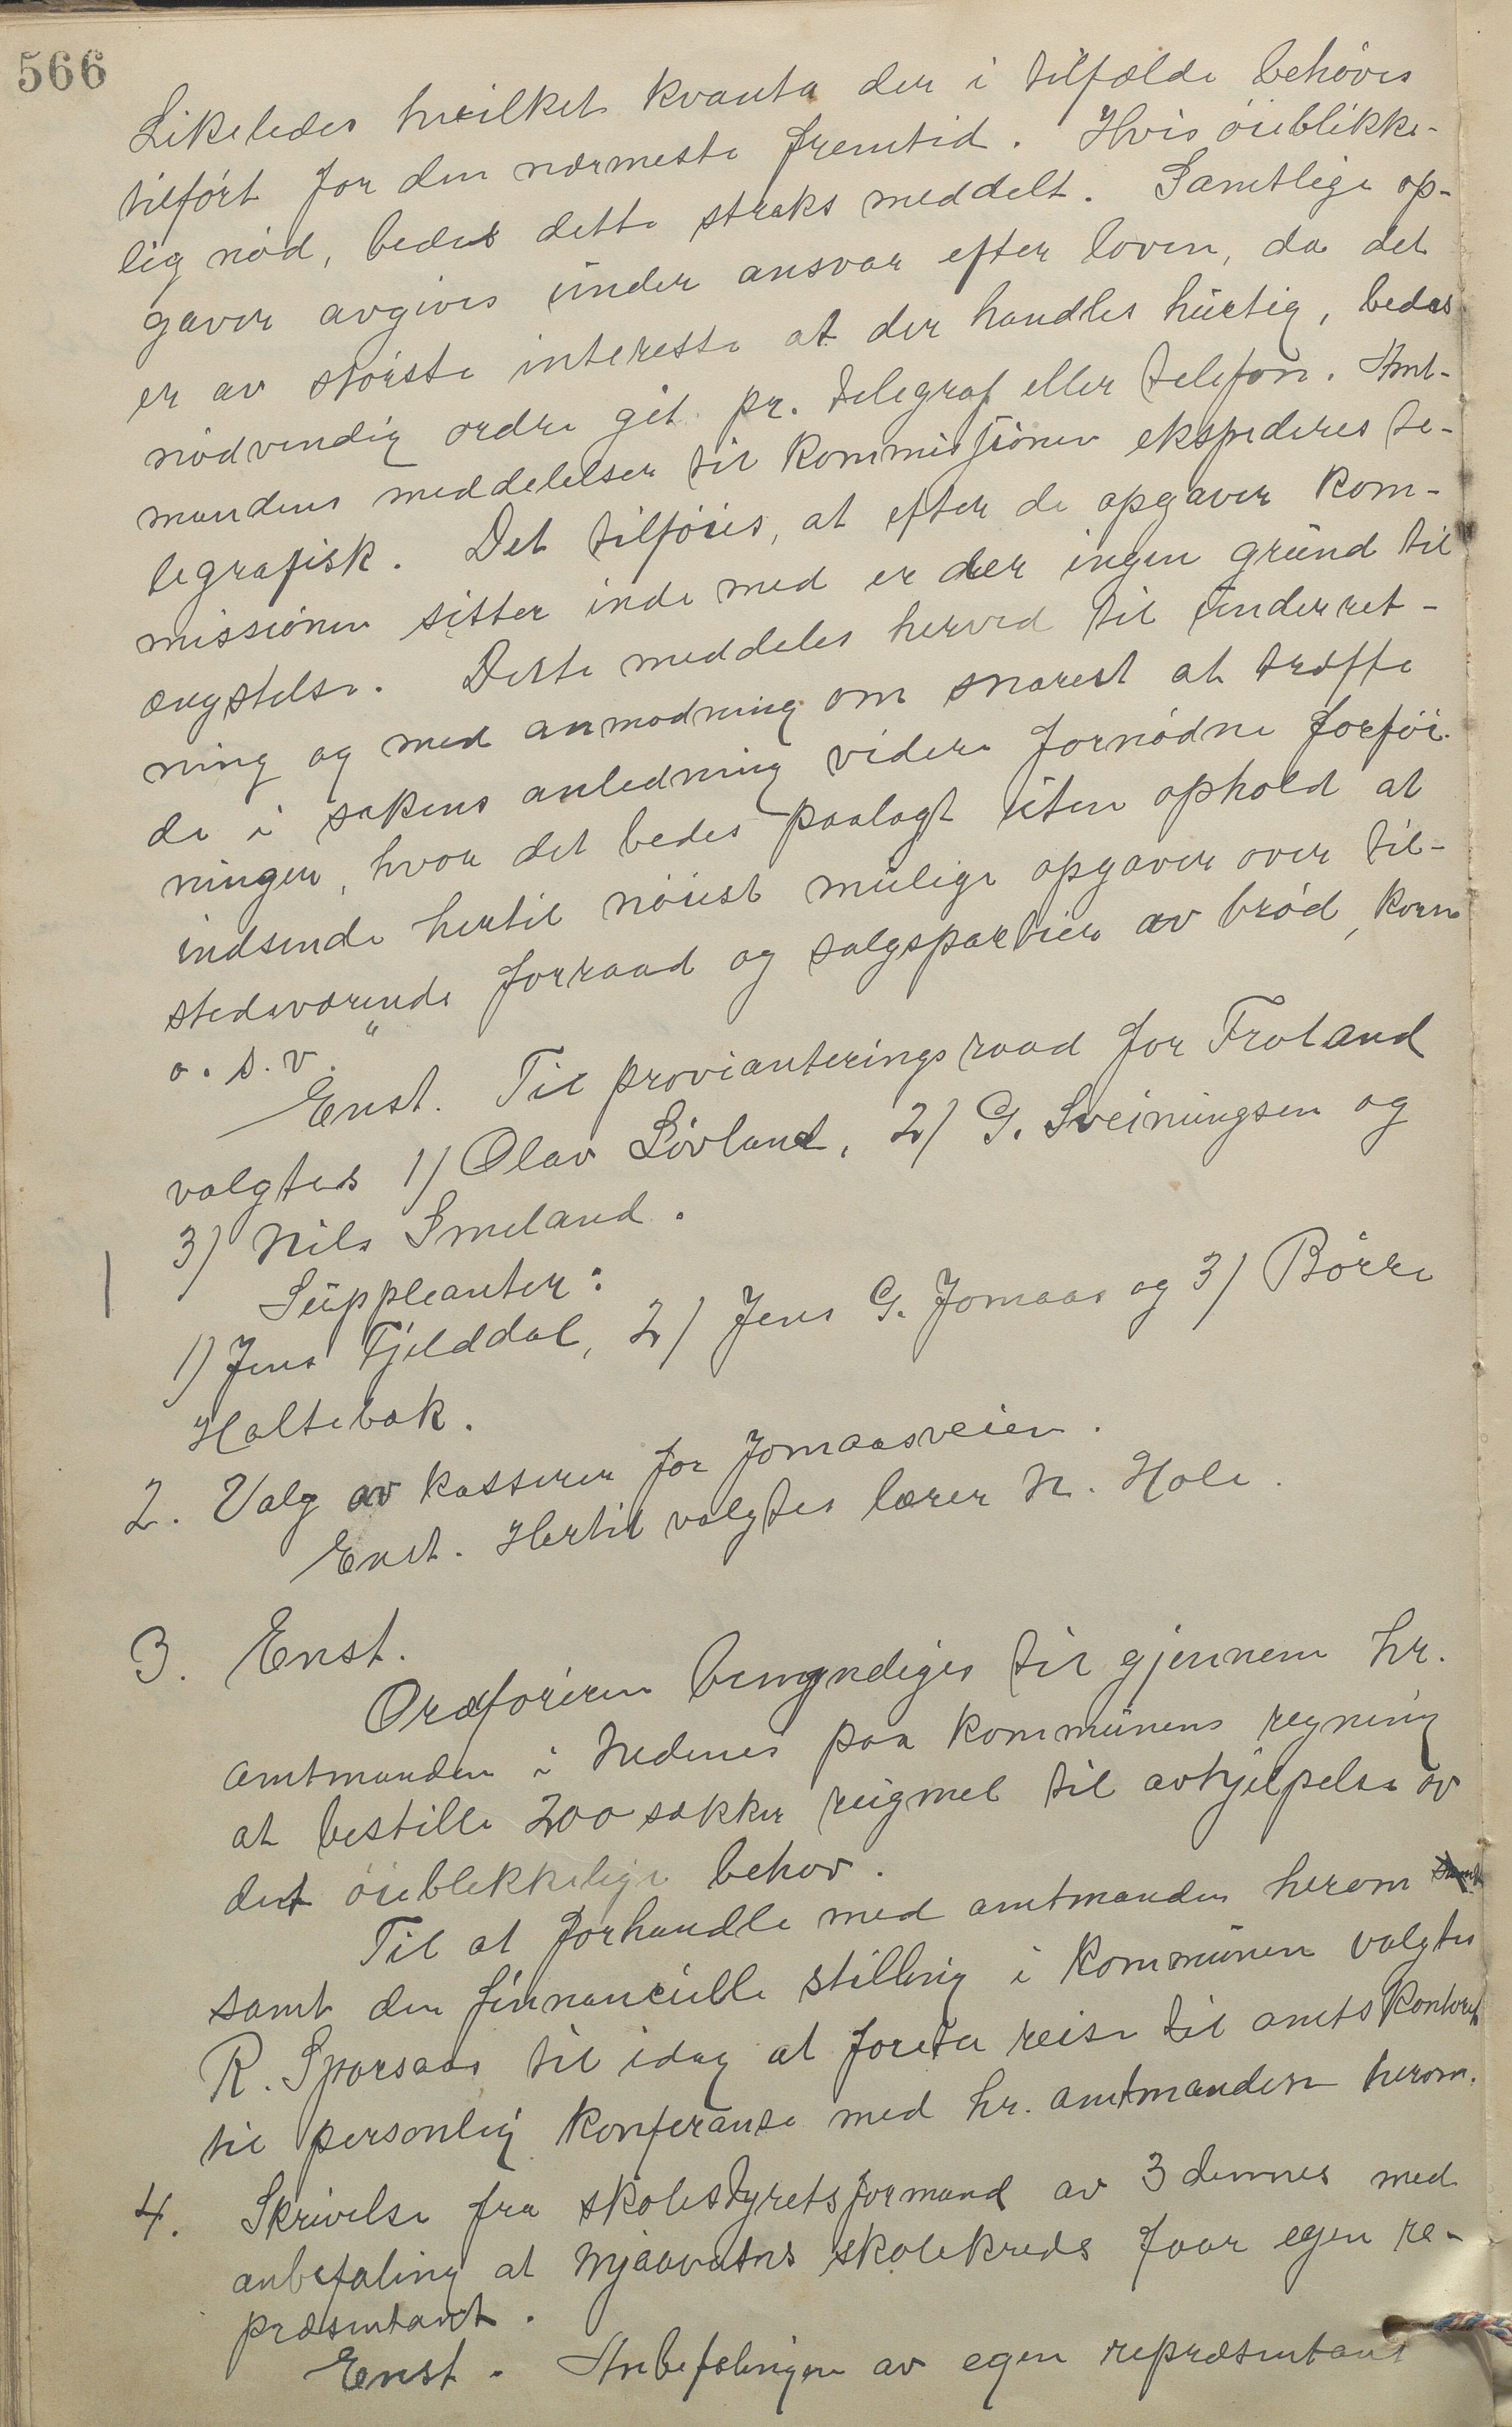 566
Likeledes hvilket kvanta der i tilfælde behöves
tilfört for den nærmeste fremtid. Hvis öieblikke-
lig nöd, bedes dette straks meddelt. Samtlige op-
gaver avgives under ansvar efter loven, da det
er av störste interesse at der handles hurtig, bedes
nödvendig ordre git pr. telegraf eller telefon. Amt-
mandens meddelelser til kommissionen ekspederes te-
legrafisk. Det tilföies, at efter de opgaver kom-
missionen sitter inde med er der ingen grund til
ængstelse. Dette meddeles herved til underret-
ning og med anmodning om snarest at træffe
de i sakens anledning videre fornödne forföi-
ninger, hvor det bedes paalagt uten ophold at
indsende hertil nöiest mulige opgaver over til-
stedeværende forraad og salgspartier av bröd, korn
o. s. v."
Enst. Til provianteringsraad for Froland
valgtes 1) Olav Lövland, 2) G. Sveinungsen og
3) Nils Smeland.
Suppleanter:
1) Jens Fjelddal, 2) Jens G. Jomaas og 3) Börre
Holtebæk.
2. Valg av kasserer for Jomaasveien.
Enst. Hertil valgtes lærer N. Hole.
3. Enst.
Ordföreren bemyndiges til gjennem hr.
amtmanden i Nedenes paa kommunens regning
at bestille 200 sækker rugmel til avhjelpelse av
det öieblikkelige behov.
Til at forhandle med amtmanden herom samt
samt den finnancielle stilling i kommunen valgtes
R. Sparsaas til idag at foreta reise til amtskontoret
til personlig konferanse med hr. amtmanden herom.
4. Skrivelse fra skolestyrets formand av 3 dennes med
anbefaling at Mjaavatns skolekreds faar egen re-
præsentant.
Enst. Anbefalingen av egen repræsentant